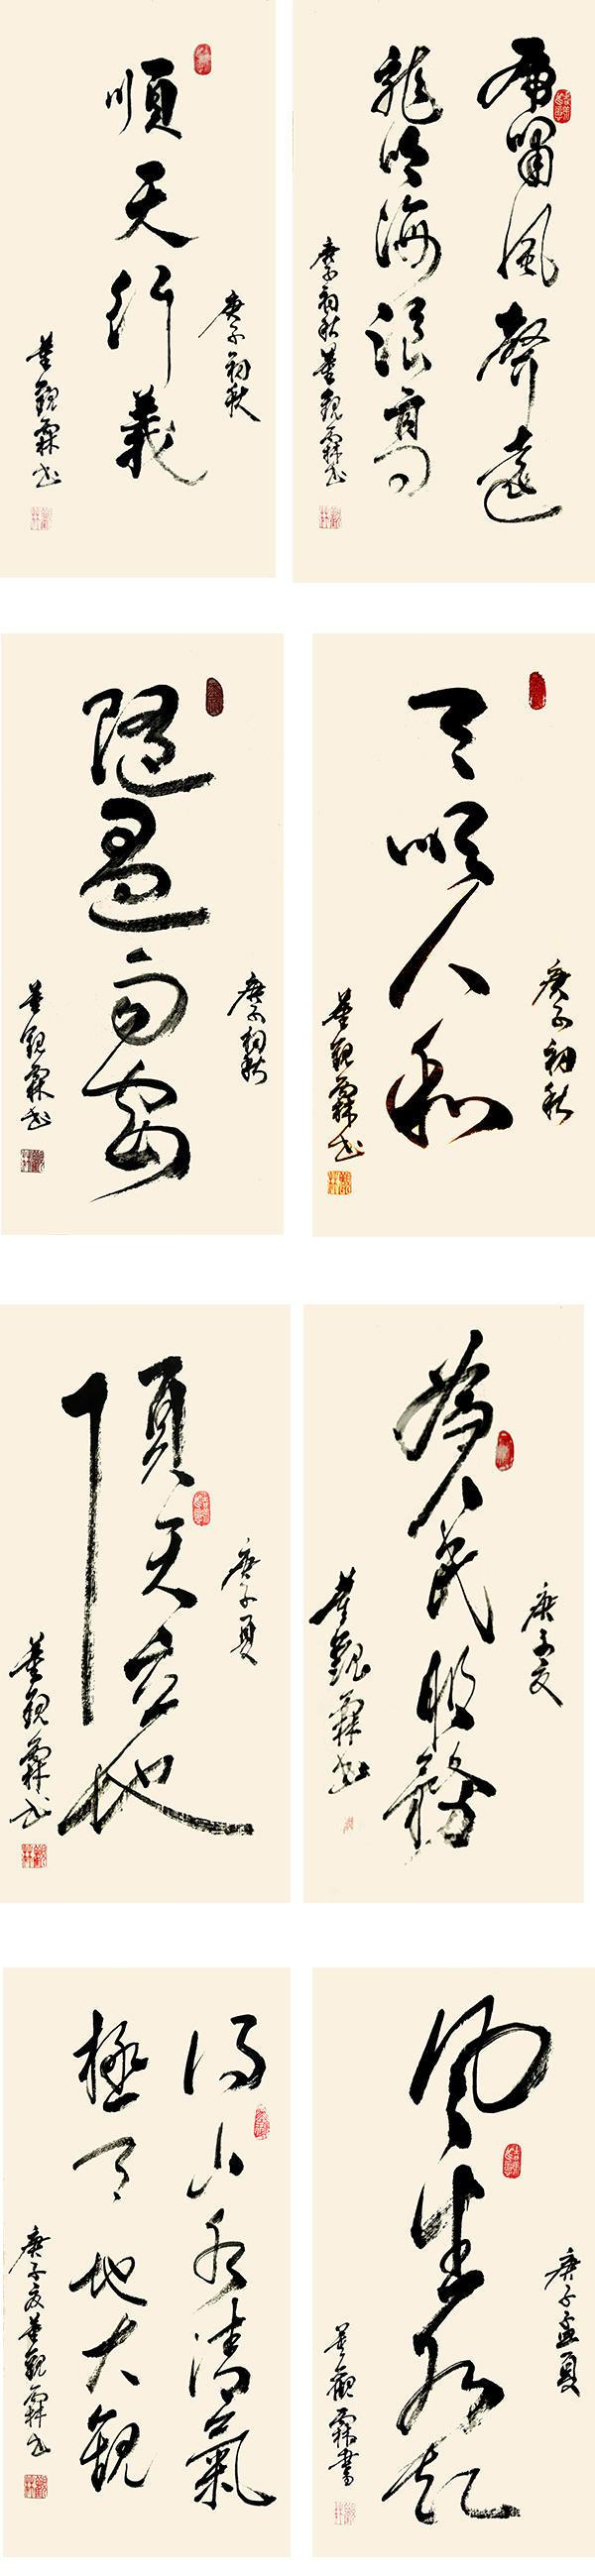 順天行義
庚子初秋
董觀霖书
虎嘯風聲遠
龍吟海浪高
庚子初秋董觀霖书
隨遇而安
庚子初秋
董觀霖书
天顺人和
庚子初秋
董觀霖书
頂天立地
庚子夏
董觀霖书
為人民服務
庚子夏
董觀霖书
得山水清氣
極天地大觀
庚子夏董觀霖书
风生水起
庚子孟夏
董觀霖書